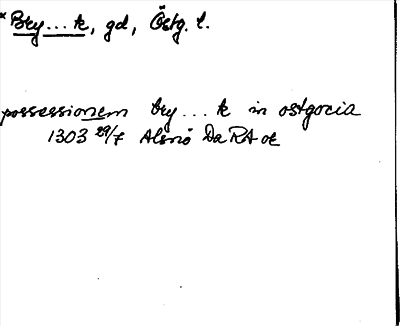 * Bry...k, gd, Östg. l.
possessionem bry...k in ostgocia
1303 29/7 Alsnö DaRA or